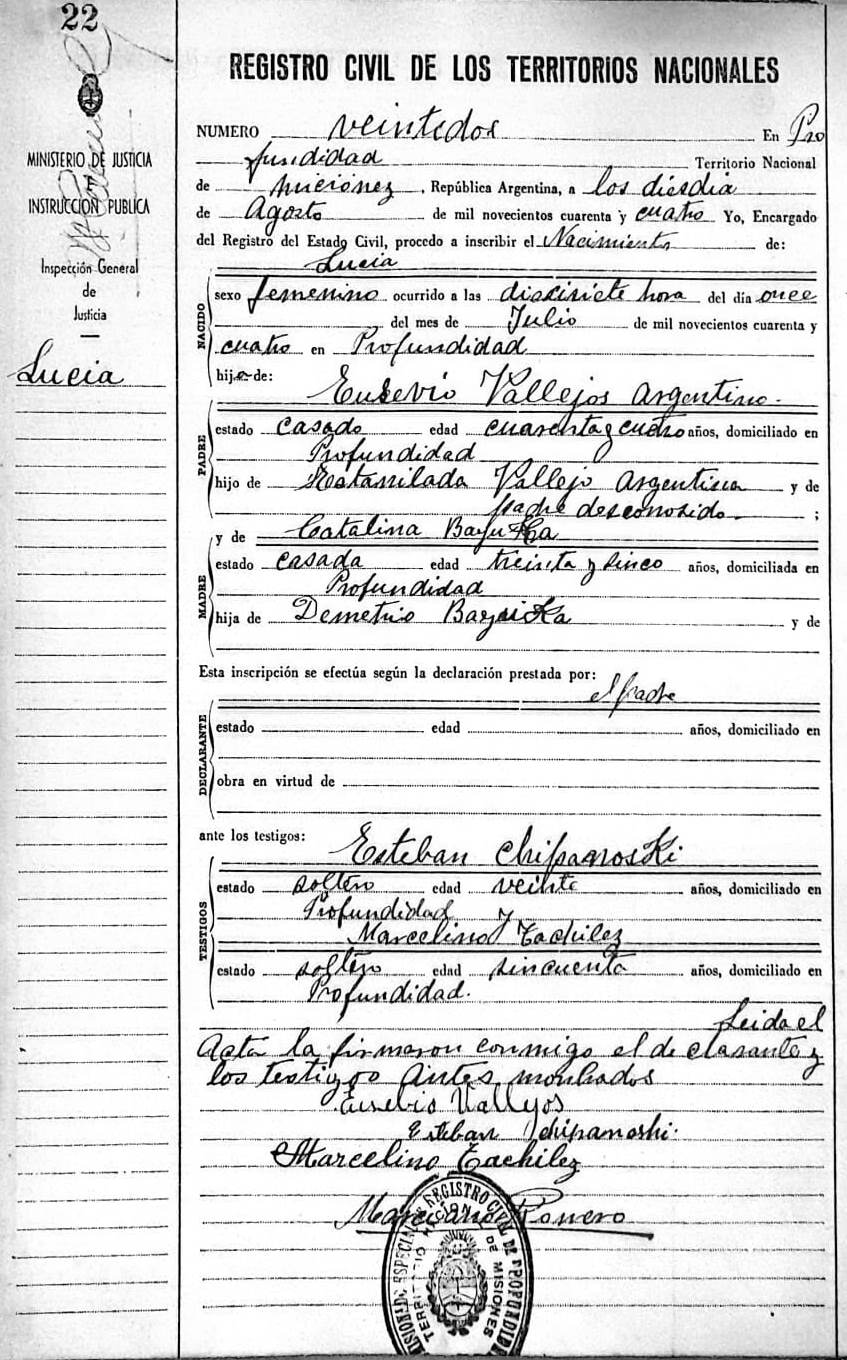 22
REGISTRO CIVIL DE LOS TERRITORIOS NACIONALES
MINISTERIO DE JUSTICIA
E
INSTRUCCIÓN PUBLICA
Inspección General
de
Justicia
Lucia
NUMERO veintedos En Pro
fundidad Territorio Nacional
de Micionez, República Argentina, a los diesdia
de Agosto de mil novecientos cuarenta y cuatro Yo, Encargado
del Registro del Estado Civil, procedo a inscribir el Nacimiento de:
Lucia
NACIDO
sexo femenino ocurrido a las diecisiete hora del día once
del mes de Julio de mil novecientos cuarenta y
cuatro en Profundidad
hija de:
Eusevio Vallejos argentino.
PADRE
estado casado edad cuarenta y cuatro años, domiciliado en
Profundidad
hijo de Estanilada Vallejo argentina y de
padre desconosido. ;
y de Catalina
MADRE
estado casada edad treinta y sinco años, domiciliada en
Profundidad
hija de Demetrio y de
Esta inscripción se efectúa según la declaración prestada por:
el padre
DECLARANTE
estado edad años, domiciliado en
obra en virtud de
ante los testigos:
Esteban Chipanoski
TESTIGOS
estado soltero edad veinte años, domiciliado en
Profundidad y
Marcelino Tachilez
estado soltero edad sincuenta años, domiciliado en
Profundidad.
Leida el
Acta la firmaron conmigo el declarante y
los testigos antes
Eusebio Vallejos
Esteban Chipanoski.
Marcelino Tachilez
Marciano Ponero
REGISTRO CIVIL DE PROFUNDIDAD
TERRITORIO NACIONAL DE MISIONES